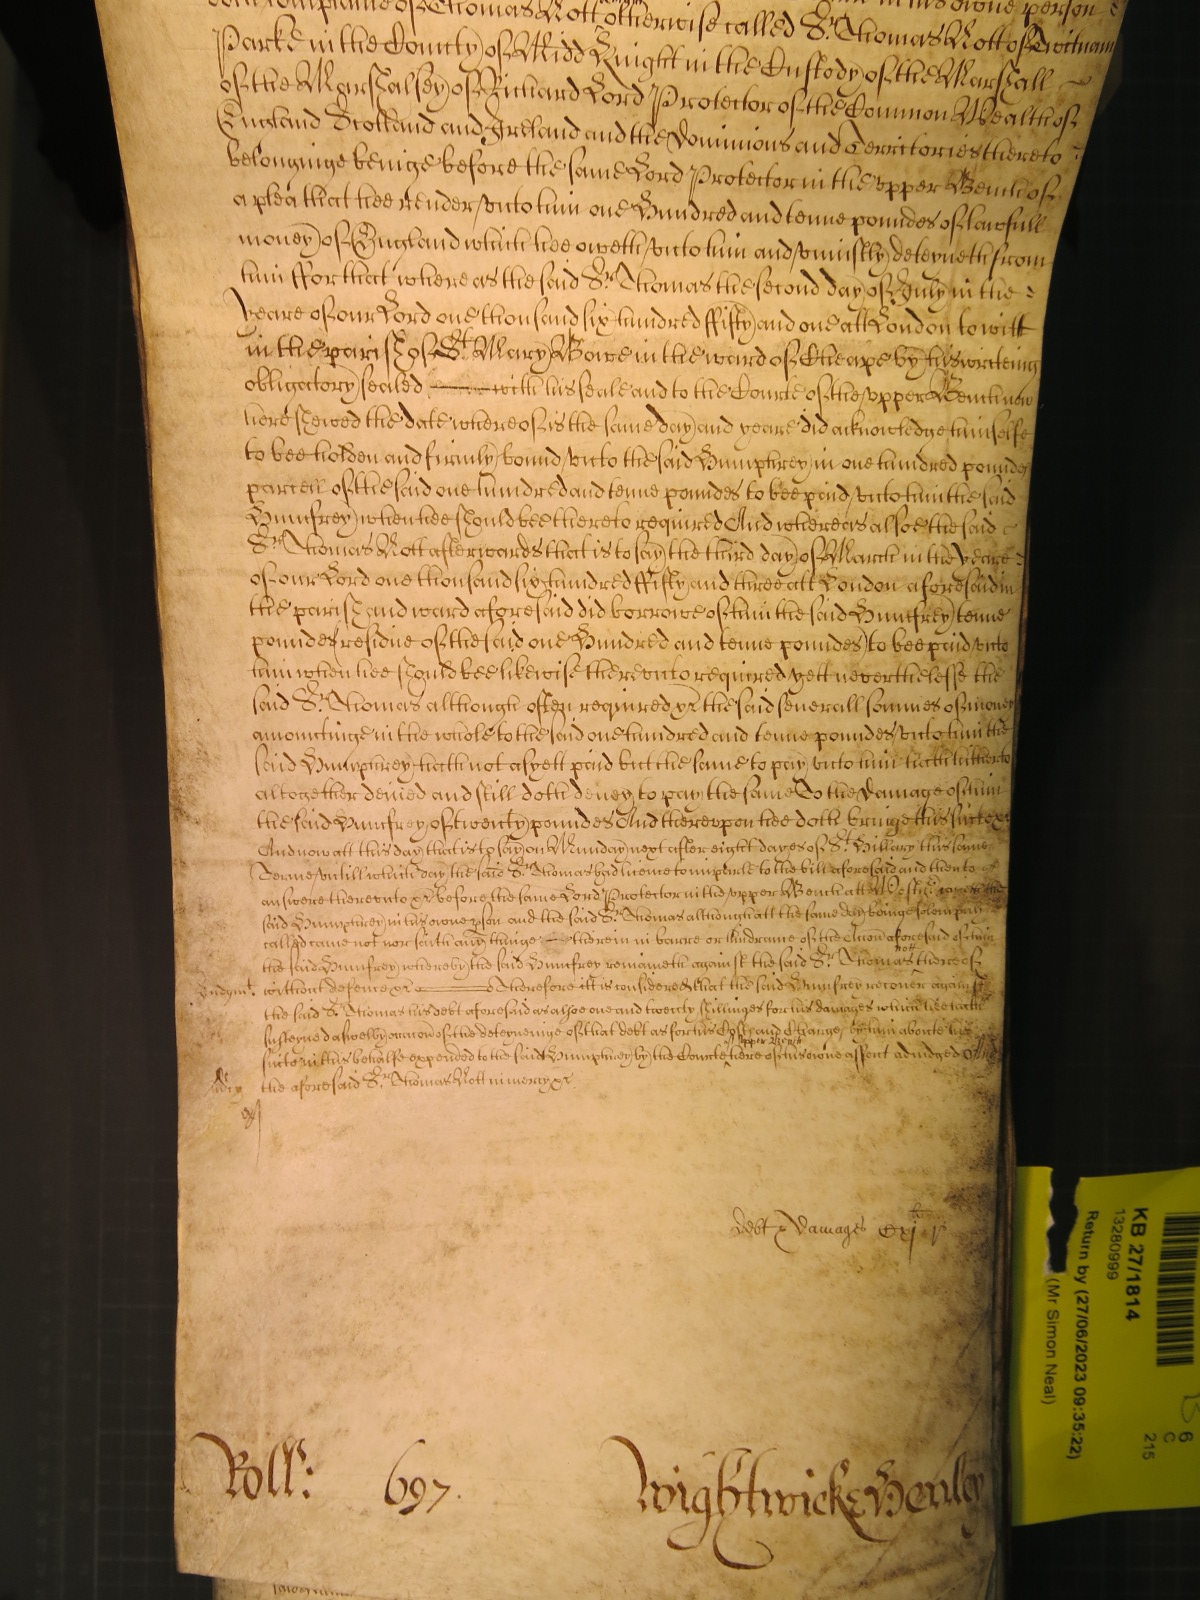 doth complaine of Thomas Nott otherwise called Sr. Thomas Nott of Twitnam
Parke in the County of Midd Knight in the Custody of the Marshall
of the Marshalsey of Richard Lord Protector of the Common Wealth of
England Scotland and Ireland and the Dominions and Territories thereto
belonginge beinge before the same Lord Protector in the upper Bench of
a plea that hee render unto him one Hundred and tenne poundes of lawfull
money of England which hee oweth unto him and uniustly deteyneth from
him ffor that whereas the said Sr. Thomas the second day of July in the
yeare of our Lord one thousand six hundred ffifty and one att London to witt
in the parish of St. Mary Bowe in the ward of Cheape by his writeing
obligatory sealed with his seale and to the Courte of the upper Bench now
here shewed the date whereof is the same day and yeare did acknowledge himselfe
to bee holden and firmly bound unto the said Humphrey in one hundred poundes
parcell of the said one hundred and tenne poundes to bee paid unto him the said
Humfrey when hee should bee thereto required And whereas alsoe the said
Sr. Thomas Nott afterwards that is to say the third day of March in the yeare
of our Lord one thousand six hundred ffifty and three att London aforesaid in
the parish and ward aforesaid did borrowe of him the said Humfrey tenne
poundes residue of the said one Hundred and tenne poundes to bee paid unto
him when hee should bee likewise thereunto required yett neverthelesse the
said Sr. Thomas although often required &c the said severall sommes of money
amountinge in the whole to the said one hundred and tenne poundes unto him the
said Humphrey hath not as yett paid but the same to pay unto him hath hitherto
altogether denied and still doth deney to pay the same To the Damage of him
the said Humfrey of twenty poundes And thereupon hee doth bringe his suite &c
And now att this day that is to say on Munday next after eight dayes of St. Hillary this same
Terme untill which day the said Sr. Thomas had licence to imparle to the bill aforesaid and then to
answere thereunto &c before the same Lord Protector in the upper Bench att Westmr. cometh the
said Humphrey in his owne pson and the said Sr. Thomas although att the same day beinge solempnly
called came not nor saith any thinge therein in barre or hindrance of the Accon aforesaid of him
the said Humfrey whereby the said Humfrey remaineth against the said Sr. Thomas Nott thereof
Judgmt. without defence &c Therefore itt is considered that the said Humfrey recover against
the said Sr. Thomas his debt aforesaid as alsoe one and twenty shillinges for his damages which hee hath
susteyned aswell by occacon of the deteyneinge of that debt as for his Costs and Charges by him aboute his
suite in this behalfe expended to the said Humphrey by the Courte of upper Bench here of his owne assent adiudged And
the aforesaid Sr. Thomas Nott in mercy &c
debt & Damages cxj li
Roll: 697. Wightwick & Henley
KB 27/1814
13280999
Return by (27/06/2023 09:35:22)
(Mr Simon Neal)
6
C
215